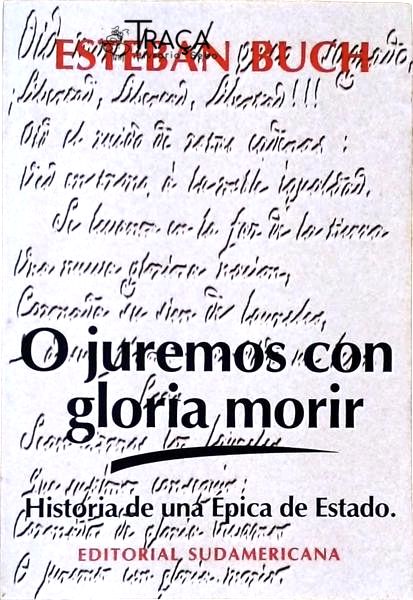 Oid
TRAÇA
ESTEBAN BUCH
¡Libertad, Libertad, Libertad!!!
Oid el ruido de rotas cadenas:
Ved en trono à la noble igualdad.
Se levanta en la faz de la tierra
Una nueva gloriosa nacion,
Coronada su sien de laureles,
O juremos con
gloria morir
Sean eternos los laureles
Que supimos conseguir:
Historia de una Epica de Estado.
Coronados de gloria vivamos
EDITORIAL SUDAMERICANA
O juremos con gloria morir